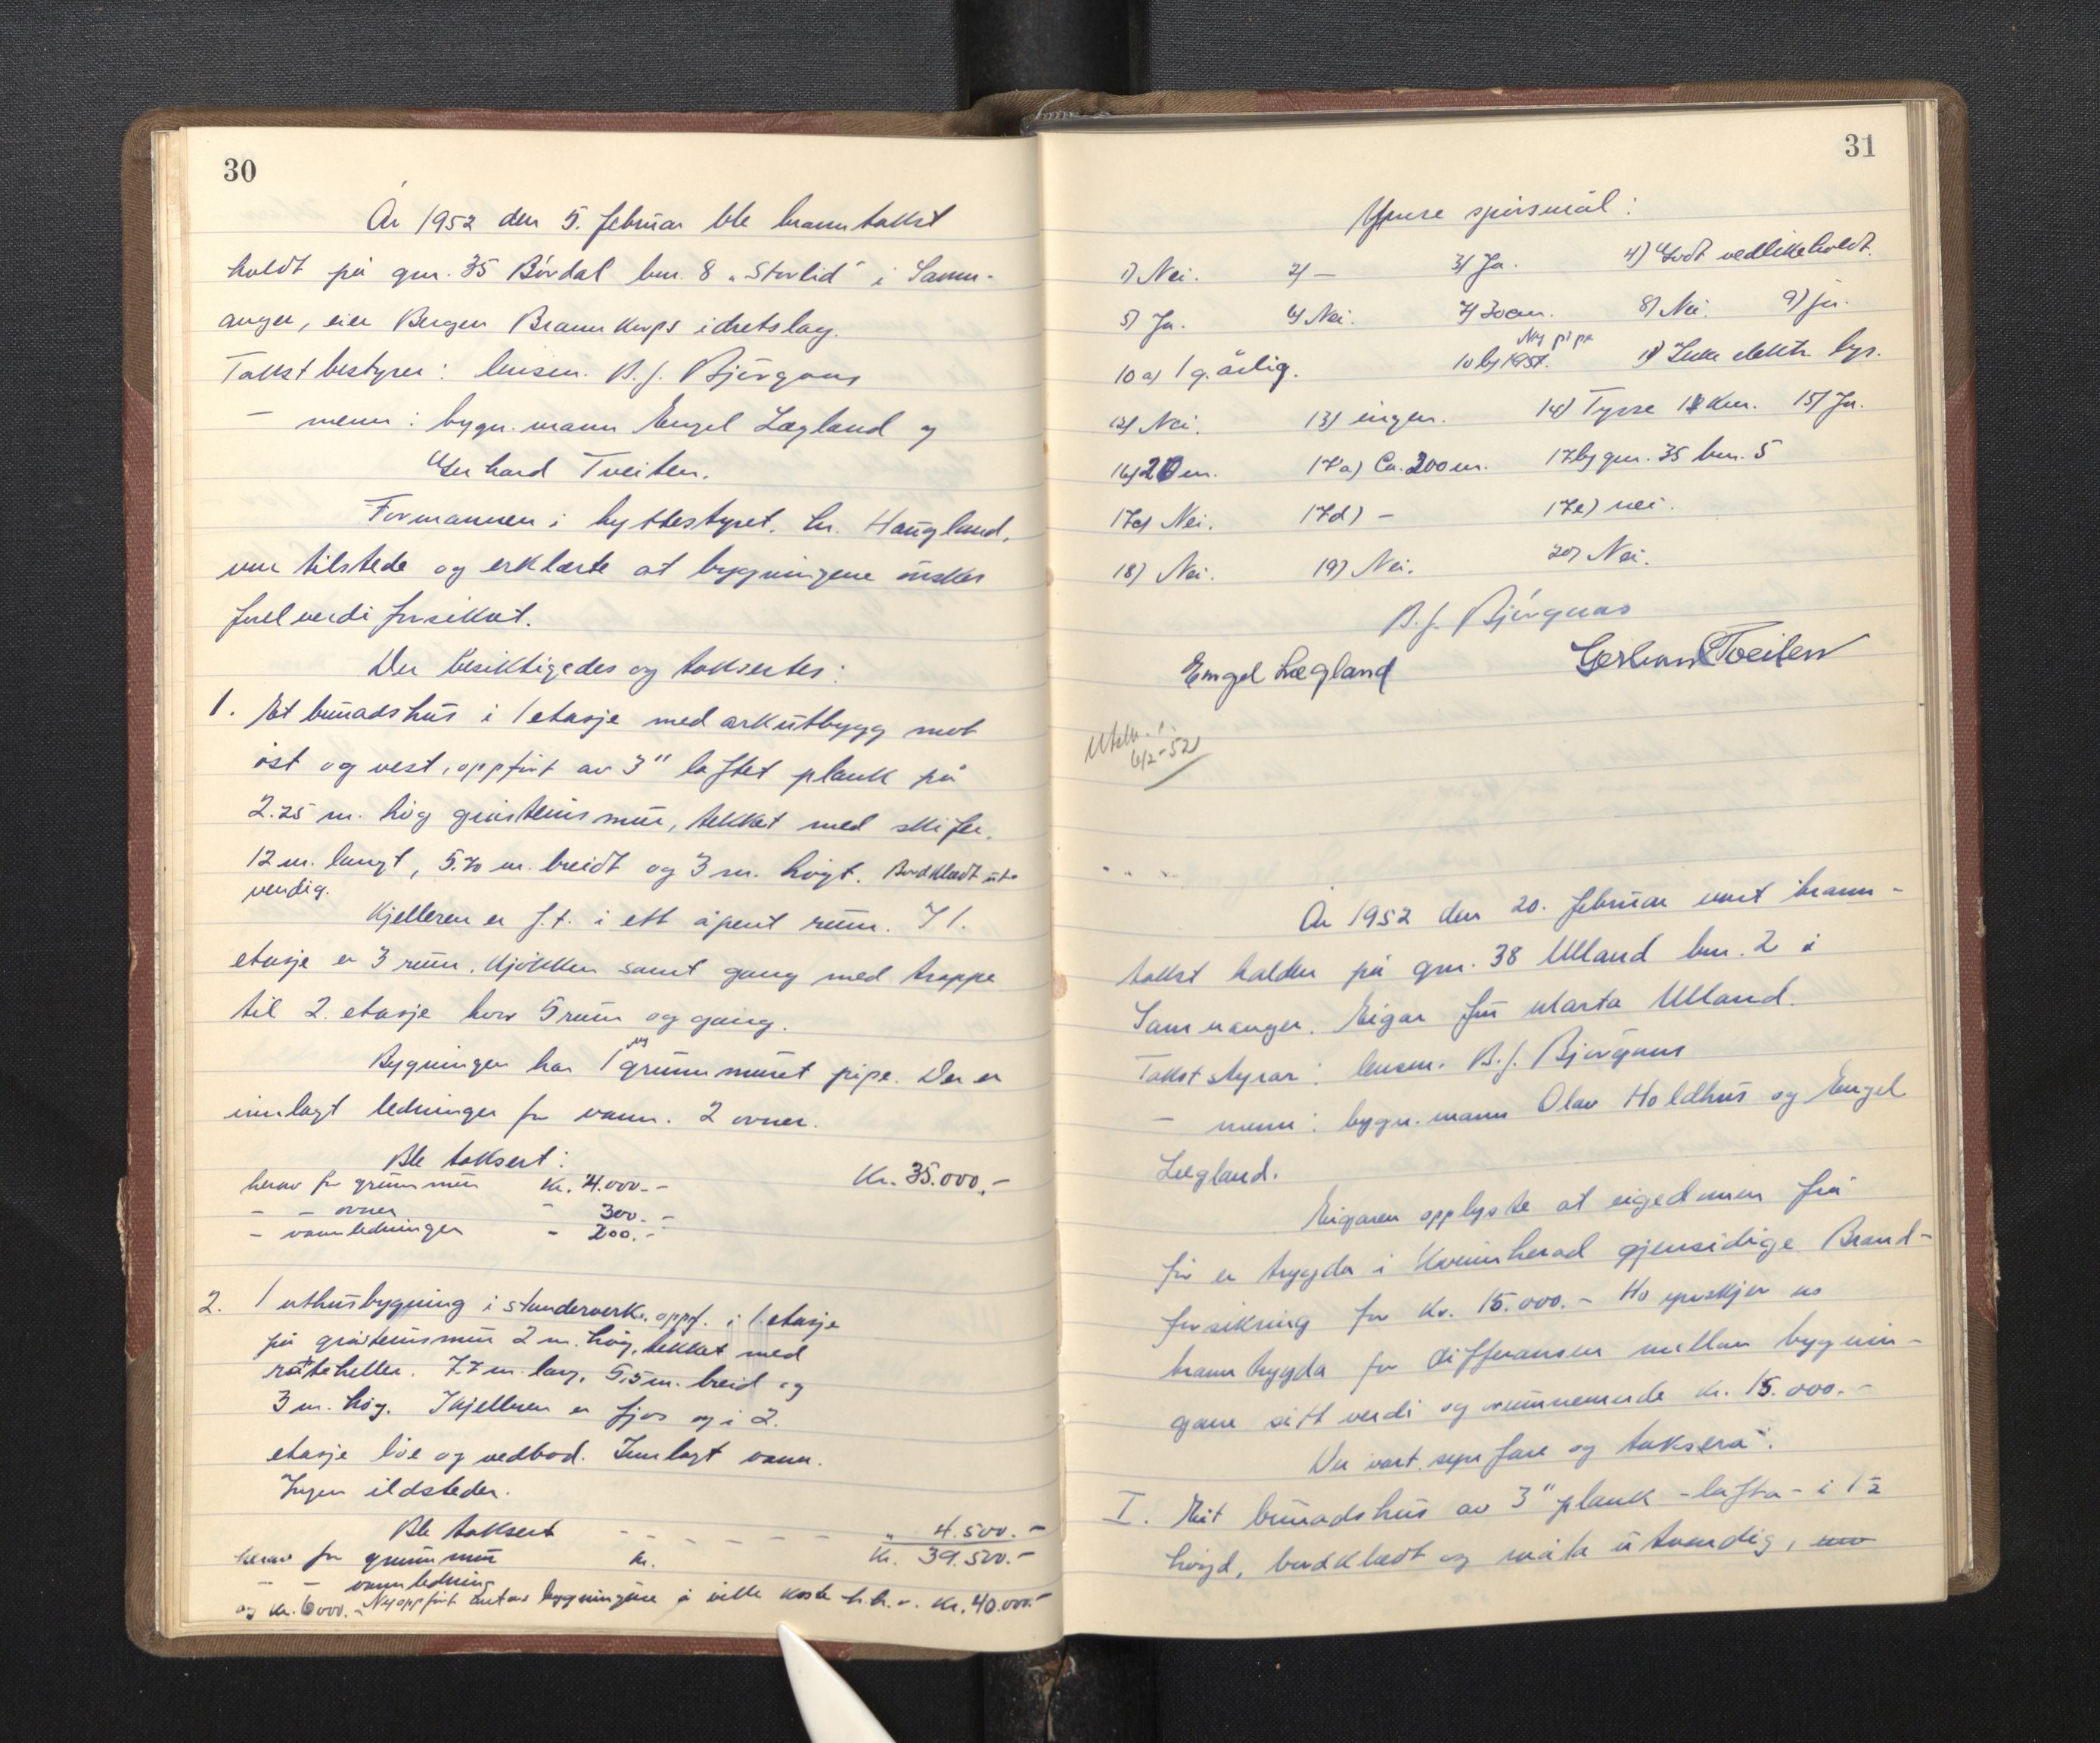 30
År 1952 den 5. februar ble branntakst
holdt på gnr. 35 Børdal bnr. 8 „Storlid" i Samn-
anger, eier Bergen Brannkorps idretslag.
Takstbestyrer: lensm. B. J. Bjørgaas
— menn: bygn.mann Engel Lægland og
Gerhard Tveiten.
Formannen i hyttestyret, hr. Haugland,
var tilstede og erklærte at bygningene ønskes
fullverdiforsikret.
Der besiktigedes og taksertes:
1. Et bunadshus i 1 etasje med arkutbygg mot
øst og vest, oppført av 3" laftet plank på
2.25 m. høg gråsteinsmur, tekket med skifer.
12 m. langt, 5.70 m. breidt og 3 m. høgt. Bordklædt ut-
vendig.
Kjelleren er f.t. i ett åpent rum. I 1.
etasje er 3 rum. Kjøkken samt gang med trappe
til 2. etasje hvor 5 rum og gang.
Bygningen har 1 ny grunnmuret pipe. Der er
innlagt ledninger for vann. 2 ovner.
Ble taksert: Kr. 35.000,-
herav for grunnmur Kr. 4.000.-
— — ovner - 300.-
— vannledninger - 200.-
2. 1 uthusbygning i stenderverk, oppf. i 1 etasje
på gråsteinsmur 2 m. høg, tekket med
råteheller. 7.7 m. lang, 5,5 m. breid og
3 m. høg. I kjelleren er fjøs og i 2.
etasje løe og vedbod. Innlagt vann.
Ingen ildsteder.
Ble taksert - - - - - - " 4.500.-
herav for grunnmur kr. Kr. 39.500.-
— — vannledning
og kr. 6000.- Nyoppført antas bygningene å ville koste h.h.v. kr. 40.000.-
31
Ymse spørsmål:
1) Nei. 2) — 3) Ja. 4) Godt vedlikeholdt.
5) Ja. 6) Nei. 7) 30cm. 8) Nei. 9) ja.
Ny pipe
10 a) 1 g. årlig. 10 b) 1951. 11) Ikke elektr. lys.
12) Nei. 13) ingen. 14) Tysse 14 km. 15) Ja.
16) 20 m. 17a) Ca. 200 m. 17b) gnr. 35 bnr. 5
17c) Nei. 17d) — 17e) nei.
18) Nei. 19) Nei. 20) Nei.
B. J. Bjørgaas
Engel Lægland Gerhard Tveiten
Utskr.
6/2-52
År 1952 den 20. februar vart brann-
takst halden på gnr. 38 Ulland bnr. 2 i
Samnanger. Eigar fru Marta Ulland.
Takststyrar: lensm. B. J. Bjørgaas
— menn: bygn.mann Olav Holdhus og Engel
Lægland.
Eigaren opplyste at eigedomen frå
før er trygda i Kvinnherad gjensidige Brand-
forsikring for kr. 15.000.- Ho ynskjer no
branntrygda for differansen mellom bygnin-
gane sitt verdi og ovannemnde kr. 15.000.-
Der vart synfare og taksera:
I. Eit bunadshus av 3" plank - lafta - i 1½
høgd, bordklædt og måla utvendig,